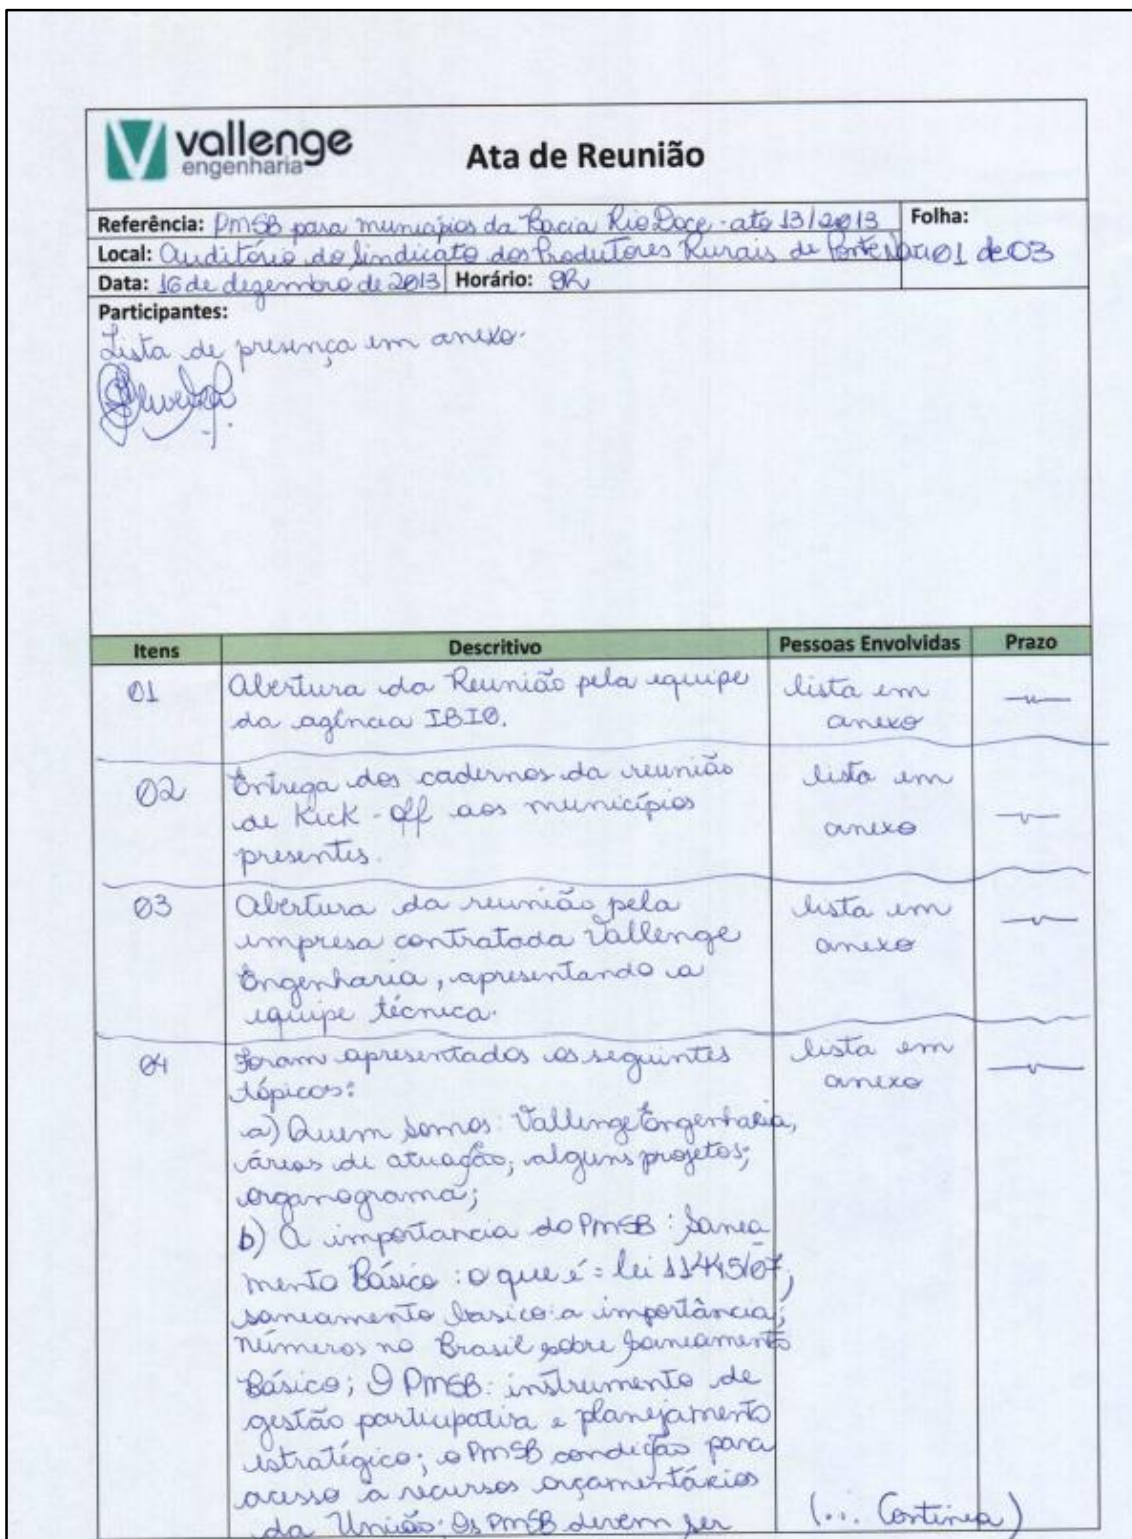 vallenge
engenharia
Ata de Reunião
Referência: PMSB para municípios da Bacia Rio Doce - ato 13/2013
Folha:
01 de 03
Local: Auditório do Sindicato dos Produtores Rurais de Ponte Nova
Data: 16 de dezembro de 2013 Horário: 9h
Participantes:
Lista de presença em anexo.
Itens Descritivo Pessoas Envolvidas Prazo
01 Abertura da Reunião pela equipe lista em
da agência IBIO. anexo
02 Entrega dos cadernos da reunião lista em
de Kick-off aos municípios anexo
presentes.
03 Abertura da reunião pela lista em
empresa contratada Vallenge anexo
Engenharia, apresentando a
equipe técnica.
04 Foram apresentados os seguintes lista em
tópicos: anexo
a) Quem somos: Vallenge Engenharia,
áreas de atuação; alguns projetos;
organograma;
b) A importancia do PMSB: Sanea
mento Básico: o que é = lei 11445/07;
saneamento basico: a importância;
números no Brasil sobre Saneamento
Básico; O PMSB: instrumento de
gestão participativa e planejamento
estratégico; o PMSB condição para
acesso a recursos orçamentários
da União. Os PMSB devem ser (... Continua)